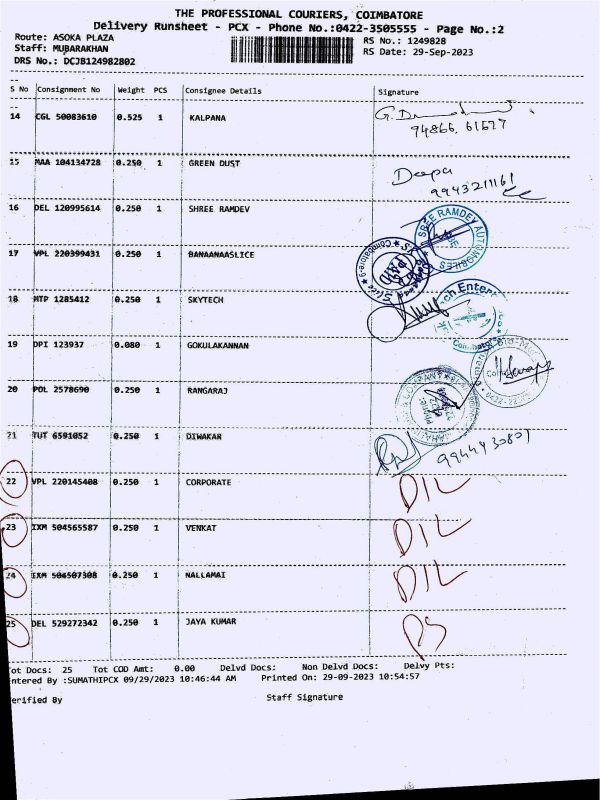 THE PROFESSIONAL COURIERS, COIMBATORE
Delivery Runsheet - PCX - Phone No.:0422-3505555 - Page No.:2
Route: ASOKA PLAZA RS No.: 1249828
Staff: MUBARAKHAN RS Date: 29-Sep-2023
DRS No.: DCJB124982802
S No Consignment No Weight PCS Consignee Details Signature
14 CGL 50083610 0.525 1 KALPANA
94866, 61627
15 MAA 104134728 0.250 1 GREEN DUST Deepa
9943211161
16 DEL 120995614 0.250 1 SHREE RAMDEV SREE RAMDEV AUTOMOBILES
17 VPL 220399431 0.250 1 BANAANAASLICE PAID Coimbatore-9
18 MTP 1285412 0.250 1 SKYTECH
19 DPI 123937 0.080 1 GOKULAKANNAN
20 POL 2578690 0.250 1 RANGARAJ
21 TUT 6591052 0.250 1 DIWAKAR 9944430807
22 VPL 220145408 0.250 1 CORPORATE DIL
23 IXM 504565587 0.250 1 VENKAT DIL
24 IXM 504507308 0.250 1 NALLAMAI DIL
25 DEL 529272342 0.250 1 JAYA KUMAR
ot Docs: 25 Tot COD Amt: 0.00 Delvd Docs: Non Delvd Docs: Delvy Pts:
ntered By :SUMATHIPCX 09/29/2023 10:46:44 AM Printed On: 29-09-2023 10:54:57
erified By Staff Signature